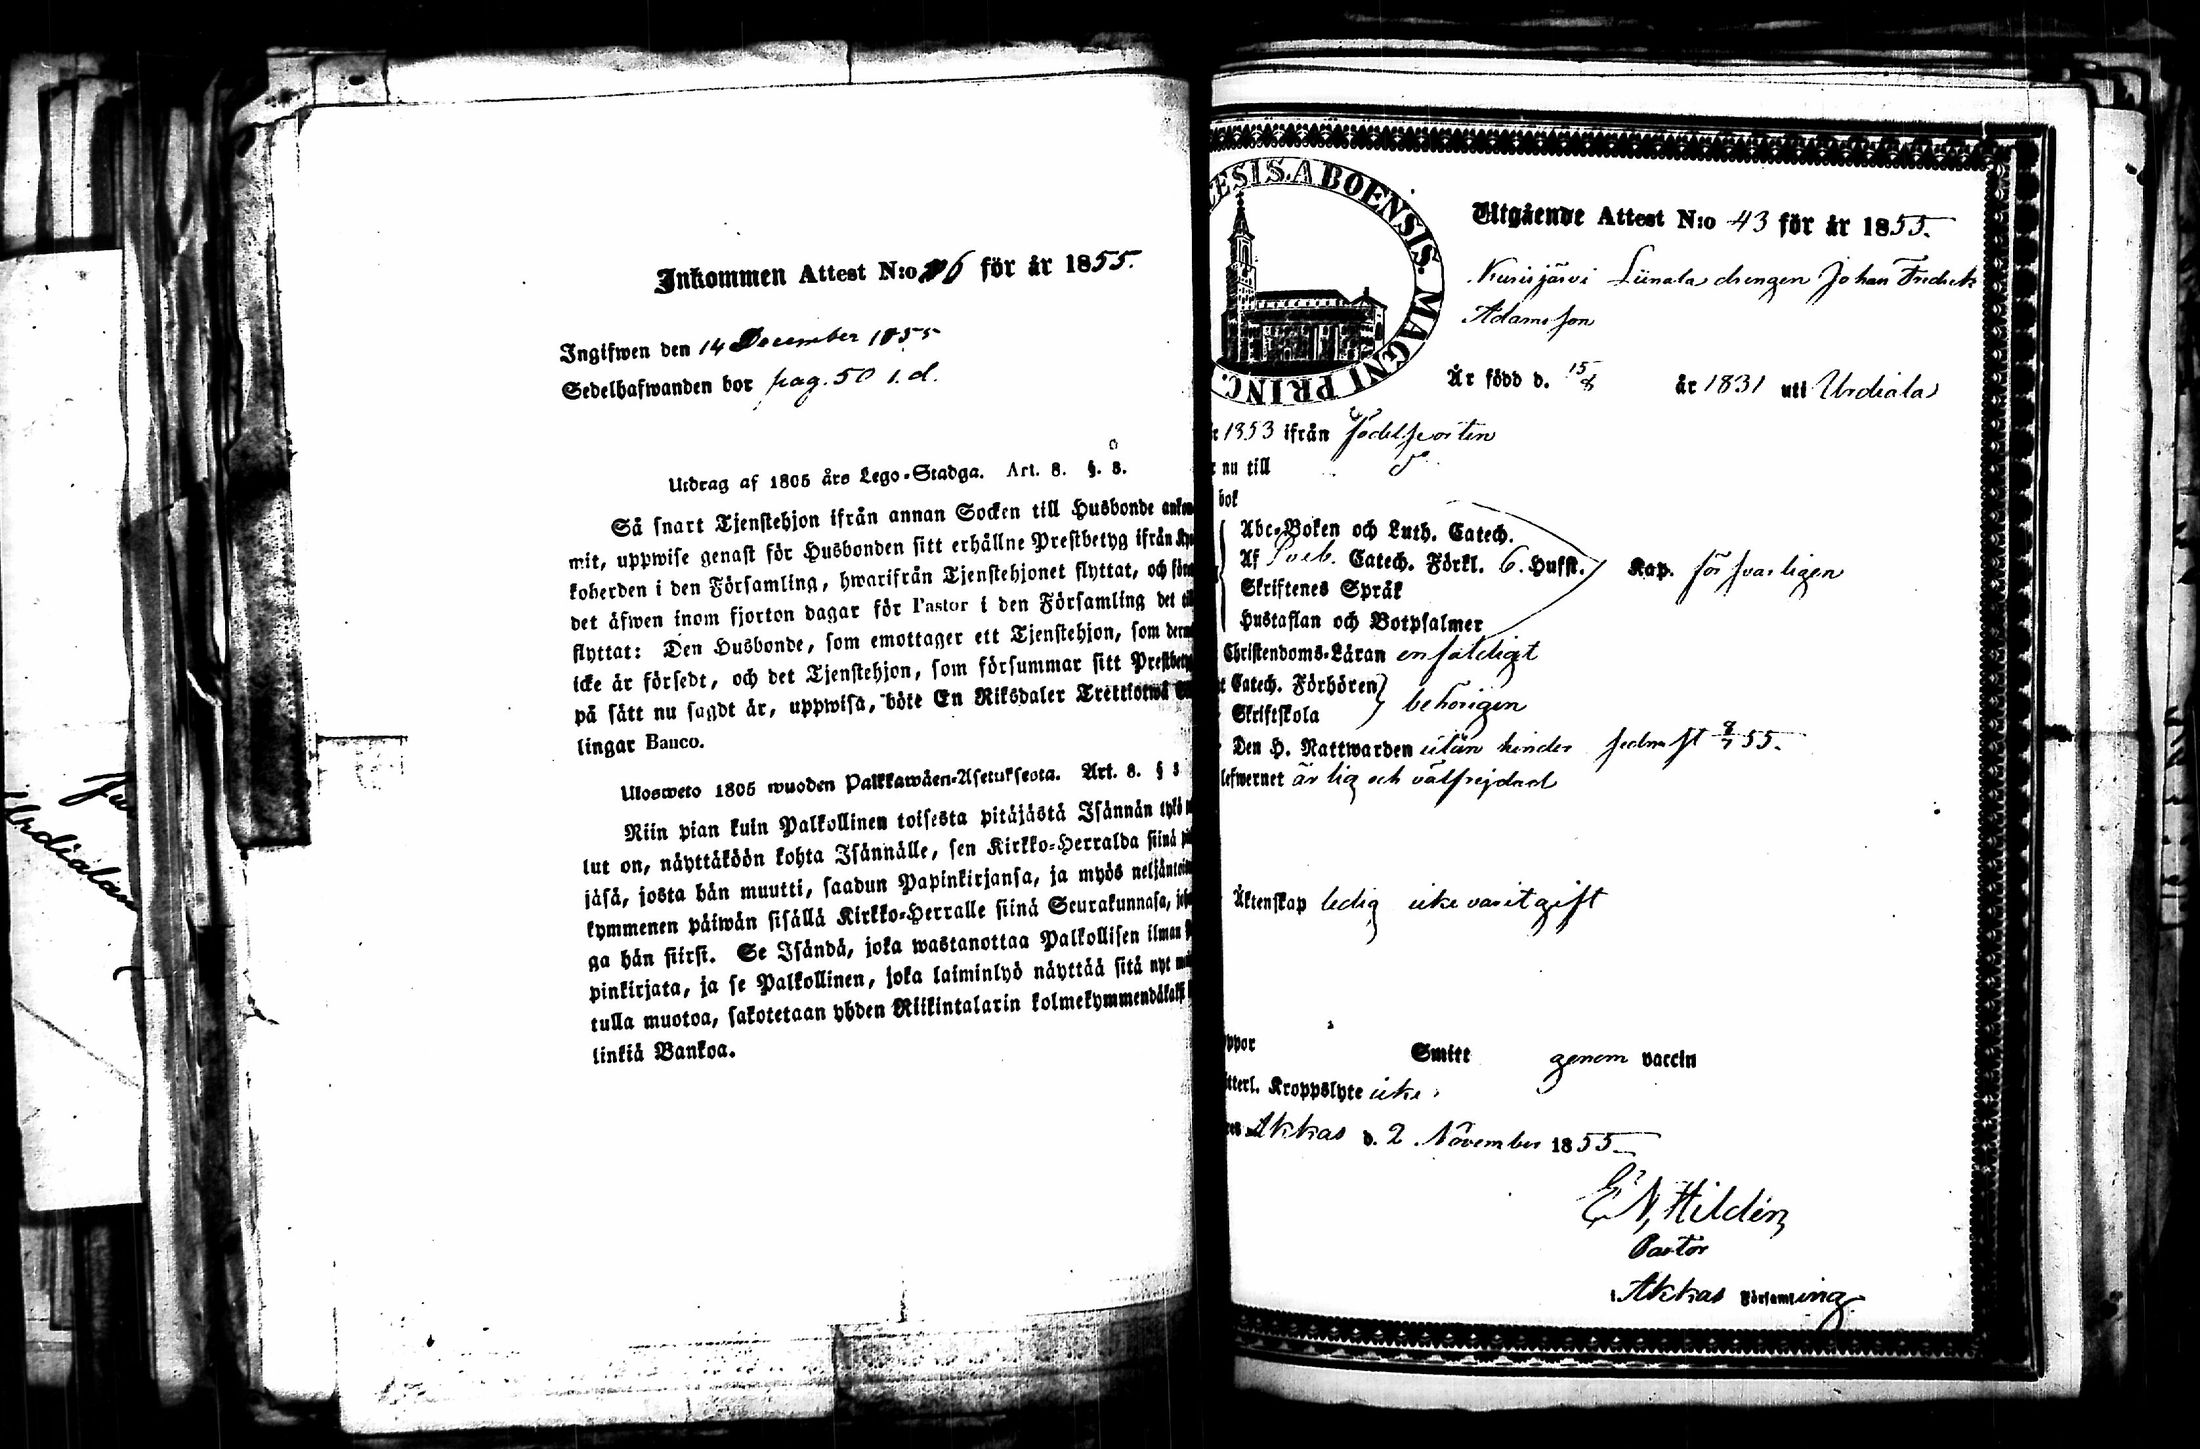 Urdiala
Inkommen Attest N:o 26 för år 1855.
Ingifwen den 14 December 1855
Sedelhafwanden bor pag. 50 i. d.
Utdrag af 1805 års Lego-Stadga. Art. 8. §. 8.
Så snart Tjenstehjon ifrån annan Socken till Husbonde
mit, uppwise genast för Husbonden sitt erhållne Prestbetyg ifrån
koherden i den Församling, hwarifrån Tjenstehjonet flyttat, och
det äfwen inom fjorton dagar för Pastor i den Församling det
flyttat: Den Husbonde, som emottager ett Tjenstehjon, som
icke är försedt, och det Tjenstehjon, som försummar sitt
på sätt nu sagdt är, uppwisa, böte En Riksdaler Trettiotwå
lingar Banco.
Ulosweto 1805 wuoden Palkkawäen-Asetuksesta. Art. 8. §
Niin pian kuin Palkollinen toisesta pitäjästä Isännän
lut on, näyttäköön kohta Isännälle, sen Kirkko-Herralda siinä
jäsä, josta hän muutti, saadun Papinkirjansa, ja myös
kymmenen päiwän sisällä Kirkko-Herralle siinä Seurakunnasa,
ga hän siirsi. Se Isändä, joka wastanottaa Palkollisen ilman
pinkirjata, ja se Palkollinen, joka laiminlyö näyttää sitä nyt
tulla muotoa, sakotetaan yhden Riikintalarin
linkiä Bankoa.
ESIS. ABOENSIS. MAGNI PRINC.
Utgående Attest N:o 43 för år 1855.
Kurisjärvi Liinala drengen Johan Fredrik
Adamsson
Är född d. 15/8 år 1831 uti Urdiala
1853 ifrån födelseorten
nu till do
bok
Abc-Boken och Luth. Catech.
Af Sveb. Catech. Förkl. 6. Hufst. Kap. försvarligen
Skriftenes Språk
Hustaflan och Botpsalmer
Christendoms-Läran enfaldigt
Catech. Förhören
Skriftskola behörigen
Den H. Nattwarden utan hinder sednast 8/7 55.
lefwernet ärlig och välfrejdad
Äktenskap ledig icke varit gift
ppor Smitt genom vaccin
tterl. Kroppslyte icke.
Akkas d. 2 November 1855
E N, Hildén
Pastor
i Akkas Församling